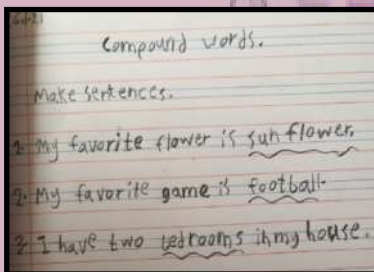 Compound words.
Make sentences.
1. My favorite flower is sun flower.
2. My favorite game is football.
3. I have two bedrooms in my house.